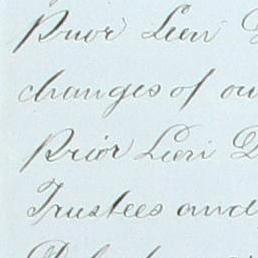 Prior Lien
changes of ow
Prior Lien D
Trustees and